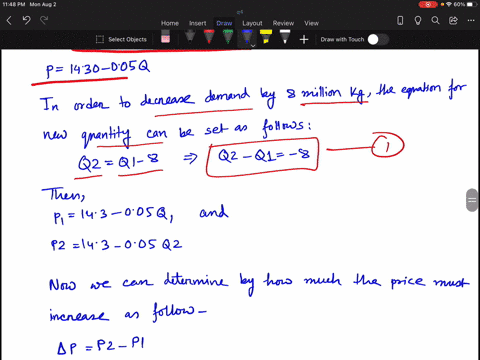 11:48 PM Mon Aug 2
60%
Insert Draw Layout Review View
Select Objects
Draw with Touch
P = 14.30-0.05Q
In order to decrease demand by 8 million kg, the equation for
new quantity can be set as follows:
Q2 = Q1-8 ⇒ Q2-Q1 = -8 1
Then,
P1 = 14.3-0.05Q, and
P2 = 14.3-0.05 Q2
Now we can determine by how much the price must
increase as follow-
ΔP = P2-P1